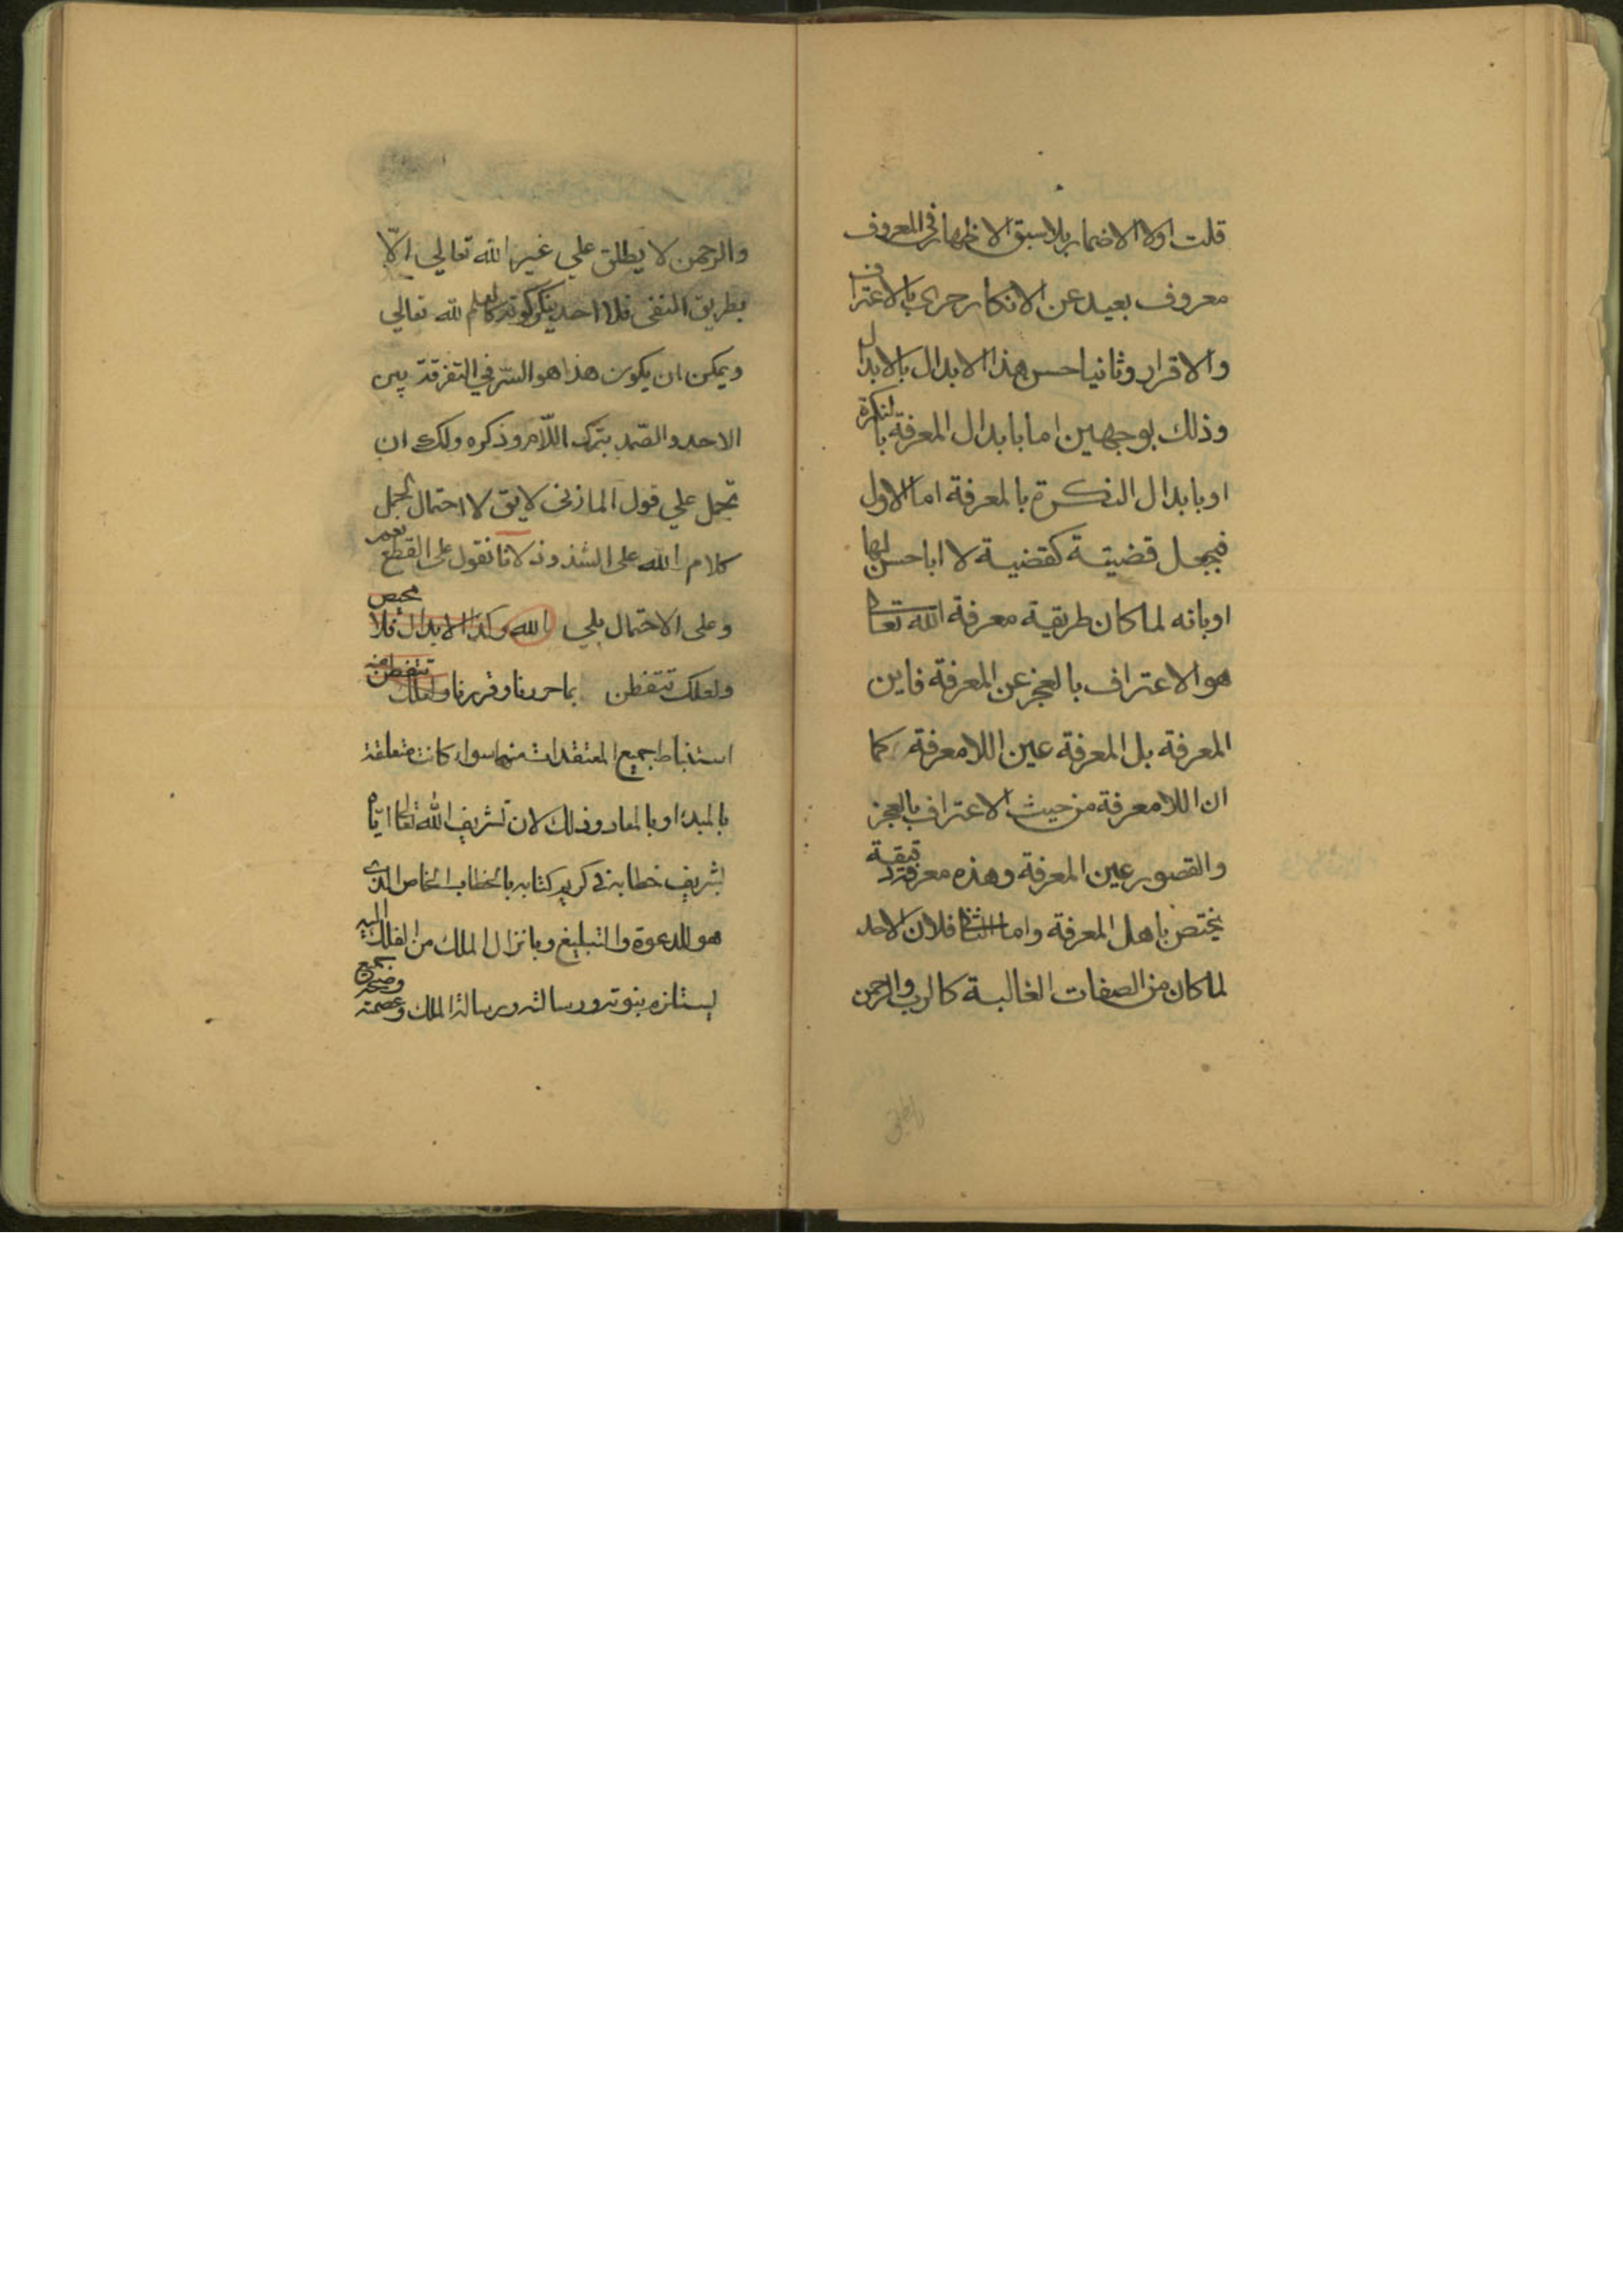 قلت اولا الاضمار بلا سبق الاظهار فى المعروف
معروف بعيد عن الانكار حرى بالاعتراف
والاقرار وثانيا حسن هذا الابدال بالابدال
وذلك بوجهين اما بابدال المعرفة بالنكرة
او بابدال النكرة بالمعرفة اما الاول
فبجعل قضيتة كقضية لا اباحسن لها
او بانه لما كان طريقية معرفة الله تعالى
هو الاعتراف بالعجز عن المعرفة فاين
المعرفة بل المعرفة عين اللامعرفة كما
ان اللامعرفة من حيث الاعتراف بالعجز
والقصور عين المعرفة وهذه معرفة دقيقة
يختص باهل المعرفة واما الثانى فلان الاحد
لما كان من الصفات الغالبة كالرب والرحمن
والرحمن لا يطلق علي غير الله تعالي الّا
بطريق النفى فلا احد ينكر كونه كالعلم لله تعالي
ويمكن ان يكون هذا هو السّر في التفرقة بين
الاحد والصّمد بترك اللّام وذكره ولك ان
تحمل علي قول المازنى لايق لا احتمال لحمل
كلام الله على الشذوذ لانا نقول على القطع نعم
وعلى الاحتمال بلي الله وكذا الابدال فلا محيص
ولعلك تتفطن بما حررنا وقررنا ولعلك تتفطن منه
استنباط جميع المعتقدات منها سواء كانت متعلقة
بالمبدء او بالمعاد وذلك لان تشريف الله تعالى ايّاه
بشريف خطابه في كريم كتابه بالخطاب الخاص الذى
هو للدعوة والتبليغ وبانزال الملك من الفلك اليه
يستلزم بنوته ورسالته ورسالة الملك وعصمته وصحة جميع